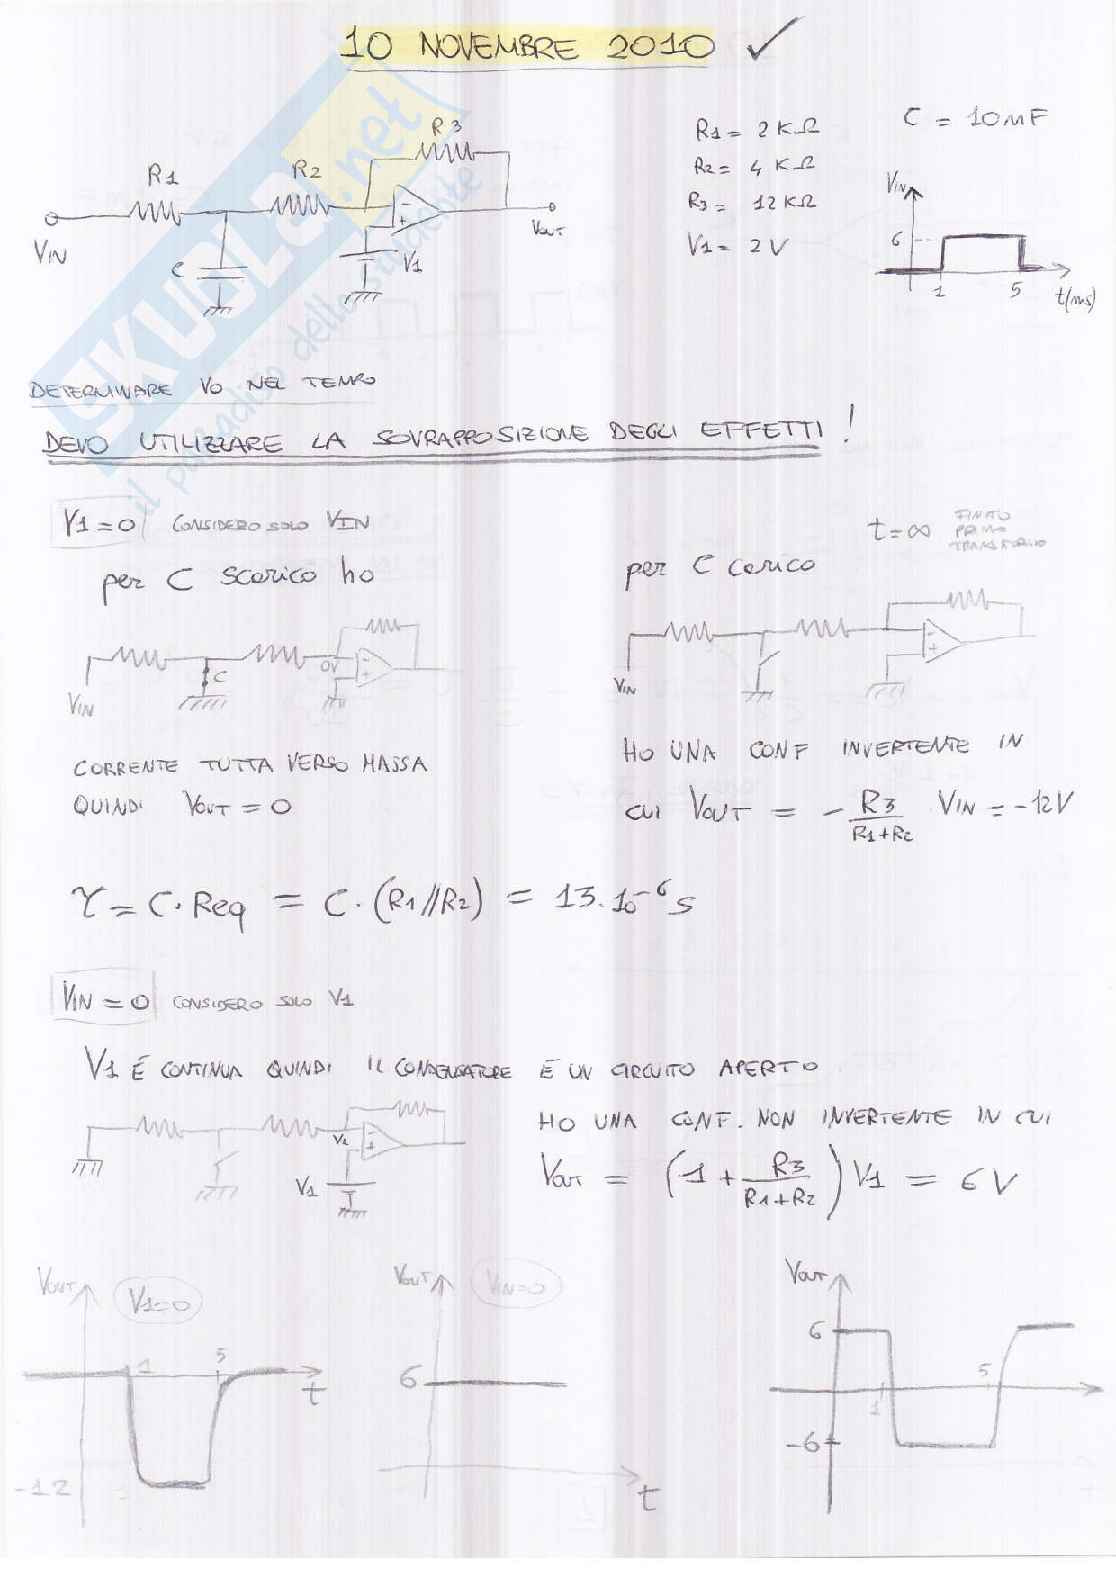 10 NOVEMBRE 2010 ✓
R3
R1 R2
VIN C V1 VOUT
R1 = 2 KΩ
R2 = 4 KΩ
R3 = 12 KΩ
V1 = 2 V
C = 10 nF
VIN
6
1 5 t(ms)
SKUOLA.net
il paradiso dello studente
DETERMINARE VO NEL TEMPO
DEVO UTILIZZARE LA SOVRAPPOSIZIONE DEGLI EFFETTI!
V1=0 CONSIDERO SOLO VIN
per C scarico ho
0V
C
VIN
CORRENTE TUTTA VERSO MASSA
QUINDI VOUT = 0
t=∞ FINITO
PRIMO
TRANSITORIO
per C carico
VIN
HO UNA CONF INVERTENTE IN
CUI VOUT = - R3/(R1+R2) VIN = -12V
τ = C·Req = C·(R1//R2) = 13·10⁻⁶ s
VIN = 0 CONSIDERO SOLO V1
V1 È CONTINUA QUINDI IL CONDENSATORE È UN CIRCUITO APERTO
V1
V1
HO UNA CONF. NON INVERTENTE IN CUI
VOUT = (1 + R3/(R1+R2)) V1 = 6 V
VOUT V1=0
1 5 t
-12
VOUT VIN=0
6
t
VOUT
6
1 5
-6